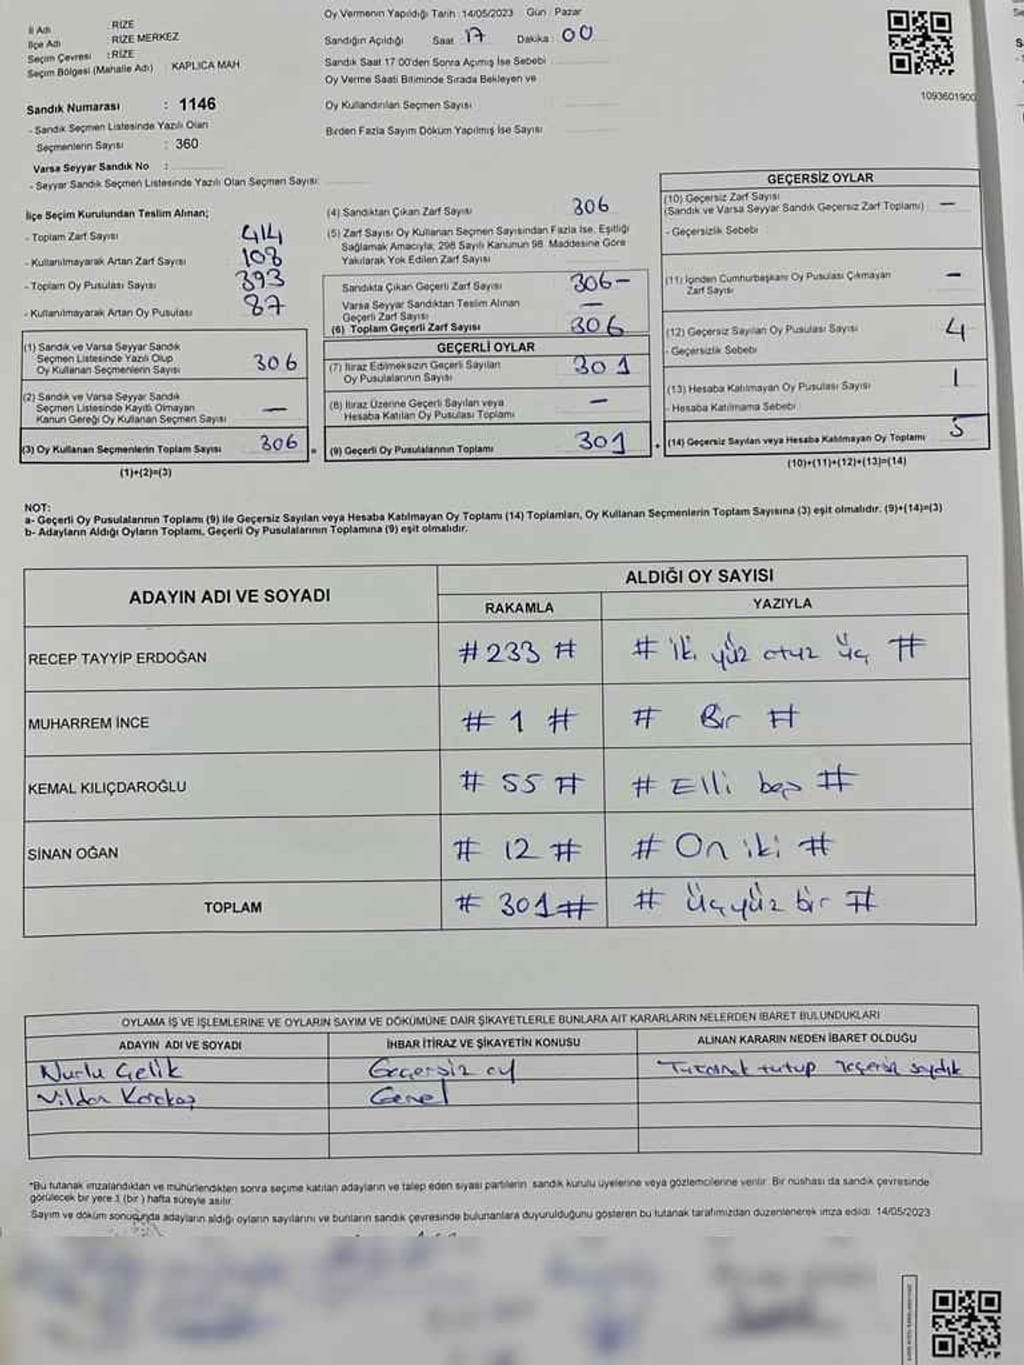 İl Adı : RİZE
İlçe Adı : RİZE MERKEZ
Seçim Çevresi : RİZE
Seçim Bölgesi (Mahalle Adı) : KAPLICA MAH
Sandık Numarası : 1146
- Sandık Seçmen Listesinde Yazılı Olan
Seçmenlerin Sayısı : 360
Varsa Seyyar Sandık No :
- Seyyar Sandık Seçmen Listesinde Yazılı Olan Seçmen Sayısı:
Oy Vermenin Yapıldığı Tarih : 14/05/2023 Gün : Pazar
Sandığın Açıldığı Saat : 17 Dakika : 00
Sandık Saat 17:00'den Sonra Açımış İse Sebebi
Oy Verme Saati Bitiminde Sırada Bekleyen ve
Oy Kullandırılan Seçmen Sayısı
Birden Fazla Sayım Döküm Yapılmış İse Sayısı
1093601900
İlçe Seçim Kurulundan Teslim Alınan;
- Toplam Zarf Sayısı 414
- Kullanılmayarak Artan Zarf Sayısı 108
- Toplam Oy Pusulası Sayısı 393
- Kullanılmayarak Artan Oy Pusulası 87
(1) Sandık ve Varsa Seyyar Sandık
Seçmen Listesinde Yazılı Olup
Oy Kullanan Seçmenlerin Sayısı 306
(2) Sandık ve Varsa Seyyar Sandık
Seçmen Listesinde Kayıtlı Olmayan
Kanun Gereği Oy Kullanan Seçmen Sayısı —
(3) Oy Kullanan Seçmenlerin Toplam Sayısı 306 =
(1)+(2)=(3)
(4) Sandıktan Çıkan Zarf Sayısı 306
(5) Zarf Sayısı Oy Kullanan Seçmen Sayısından Fazla İse, Eşitliği
Sağlamak Amacıyla; 298 Sayılı Kanunun 98. Maddesine Göre
Yakılarak Yok Edilen Zarf Sayısı
Sandıkta Çıkan Geçerli Zarf Sayısı 306-
Varsa Seyyar Sandıktan Teslim Alınan
Geçerli Zarf Sayısı —
(6) Toplam Geçerli Zarf Sayısı 306
GEÇERLİ OYLAR
(7) İtiraz Edilmeksizin Geçerli Sayılan
Oy Pusulalarının Sayısı 301
(8) İtiraz Üzerine Geçerli Sayılan veya
Hesaba Katılan Oy Pusulası Toplamı —
(9) Geçerli Oy Pusulalarının Toplamı 301 +
GEÇERSİZ OYLAR
(10) Geçersiz Zarf Sayısı
(Sandık ve Varsa Seyyar Sandık Geçersiz Zarf Toplamı) —
- Geçersizlik Sebebi
(11) İçinden Cumhurbaşkanı Oy Pusulası Çıkmayan
Zarf Sayısı —
(12) Geçersiz Sayılan Oy Pusulası Sayısı 4
- Geçersizlik Sebebi
(13) Hesaba Katılmayan Oy Pusulası Sayısı 1
- Hesaba Katılmama Sebebi
(14) Geçersiz Sayılan veya Hesaba Katılmayan Oy Toplamı 5
(10)+(11)+(12)+(13)=(14)
NOT:
a- Geçerli Oy Pusulalarının Toplamı (9) ile Geçersiz Sayılan veya Hesaba Katılmayan Oy Toplamı (14) Toplamları, Oy Kullanan Seçmenlerin Toplam Sayısına (3) eşit olmalıdır. (9)+(14)=(3)
b- Adayların Aldığı Oyların Toplamı, Geçerli Oy Pusulalarının Toplamına (9) eşit olmalıdır.
ADAYIN ADI VE SOYADI
ALDIĞI OY SAYISI
RAKAMLA YAZIYLA
RECEP TAYYİP ERDOĞAN #233 # # iki yüz otuz üç #
MUHARREM İNCE # 1 # # Bir #
KEMAL KILIÇDAROĞLU # 55 # # Elli beş #
SİNAN OĞAN # 12 # # On iki #
TOPLAM # 301 # # üçyüz bir #
OYLAMA İŞ VE İŞLEMLERİNE VE OYLARIN SAYIM VE DÖKÜMÜNE DAİR ŞİKAYETLERLE BUNLARA AİT KARARLARIN NELERDEN İBARET BULUNDUKLARI
ADAYIN ADI VE SOYADI İHBAR İTİRAZ VE ŞİKAYETİN KONUSU ALINAN KARARIN NEDEN İBARET OLDUĞU
Nurlu Çelik Geçersiz oy Tutanak tutup geçersiz saydık
Vildan Genel
*Bu tutanak imzalandıktan ve mühürlendikten sonra seçime katılan adayların ve talep eden siyasi partilerin sandık kurulu üyelerine veya gözlemcilerine verilir. Bir nüshası da sandık çevresinde
görülecek bir yere 1 (bir) hafta süreyle asılır.
Sayım ve döküm sonucunda adayların aldığı oyların sayılarını ve bunların sandık çevresinde bulunanlara duyurulduğunu gösteren bu tutanak tarafımızdan düzenlenerek imza edildi. 14/05/2023